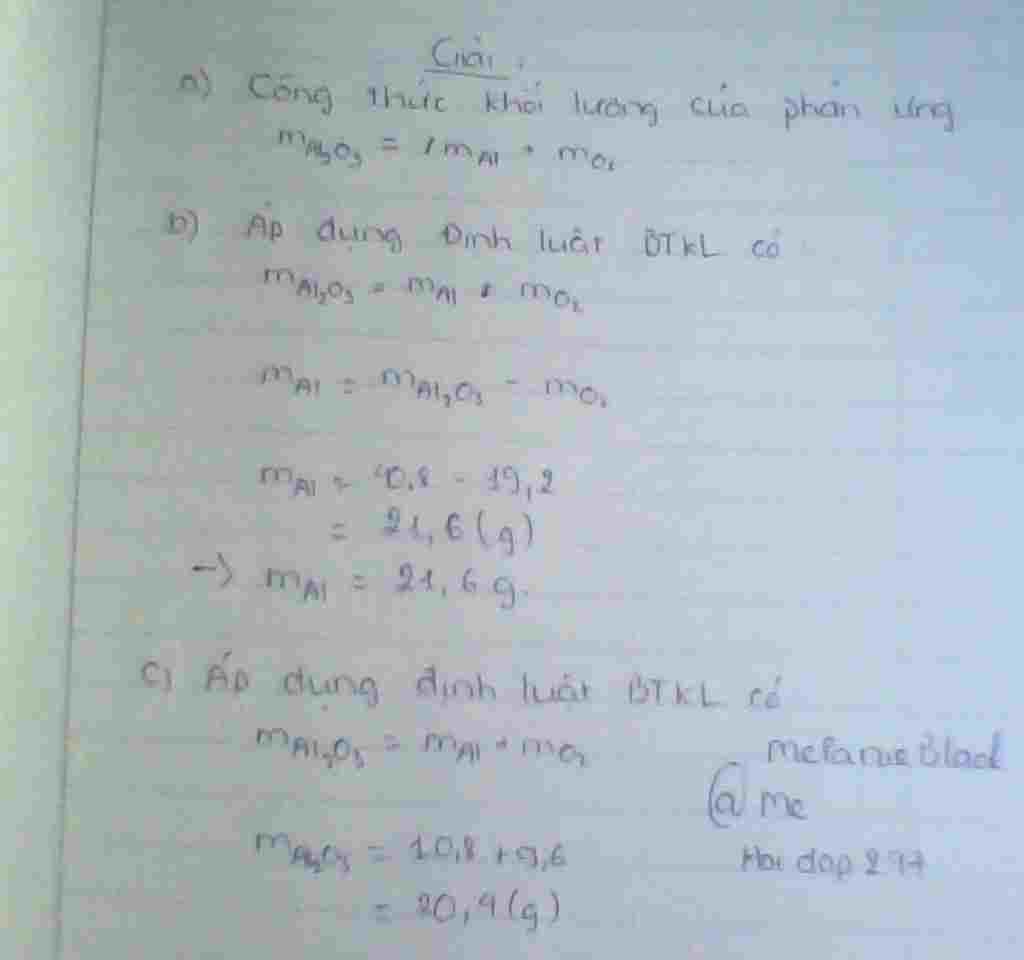 Giải:
a) Công thức khối lượng của phản ứng
mAl2O3 = mAl + mO2
b) Áp dụng Định luật BTKL có
mAl2O3 = mAl + mO2
mAl = mAl2O3 - mO2
mAl = 40,8 - 19,2
= 21,6 (g)
-> mAl = 21,6 g.
c) Áp dụng định luật BTKL có
mAl2O3 = mAl + mO2
Black
@ Mc
mAl2O3 = 10,8 + 9,6
Hoi dap 297
= 20,4 (g)